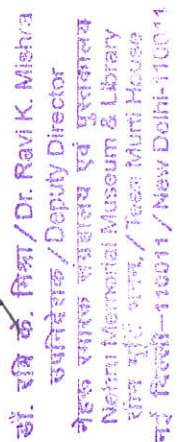 डॉ. रवि के. मिश्रा/Dr. Ravi K. Mishra
उपनिदेशक/Deputy Director
नेहरू स्मारक संग्रहालय एवं पुस्तकालय
Nehru Memorial Museum & Library
तीन मूर्ति भवन/Teen Murti House
नई दिल्ली-110011/New Delhi-110011